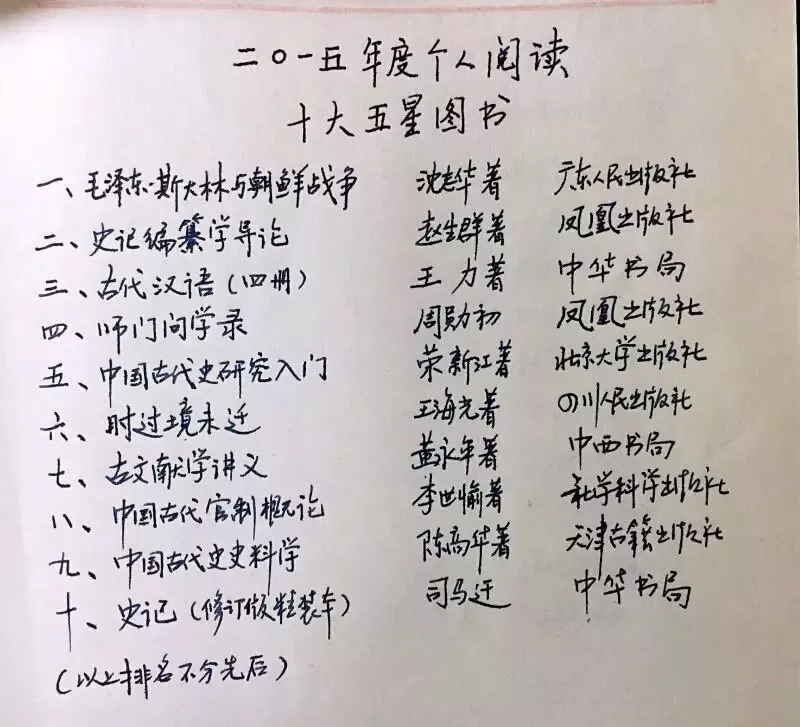 二〇一五年度个人阅读
十大五星图书
一、毛泽东·斯大林与朝鲜战争 沈志华著 广东人民出版社
二、史记编纂学导论 赵生群著 凤凰出版社
三、古代汉语(四册) 王力著 中华书局
四、师门问学录 周勋初 凤凰出版社
五、中国古代史研究入门 荣新江著 北京大学出版社
六、时过境未迁 王海光著 四川人民出版社
七、古文献学讲义 黄永年著 中西书局
八、中国古代官制概论 李世愉著 社学科学出版社
九、中国古代史史料学 陈高华著 天津古籍出版社
十、史记(修订版精装本) 司马迁 中华书局
(以上排名不分先后)